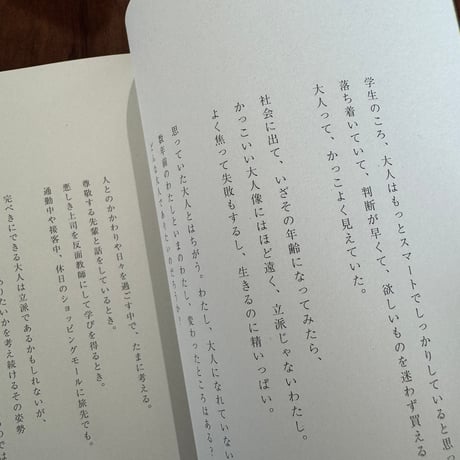 学生のころ、大人はもっとスマートでしっかりしていると思っ
落ち着いていて、判断が早くて、欲しいものを迷わず買える
大人って、かっこよく見えていた。
社会に出て、いざその年齢になってみたら、
かっこいい大人像にはほど遠く、立派じゃないわたし。
よく焦って失敗もするし、生きるのに精いっぱい。
思っていた大人とはちがう。わたし、大人になれていない
数年前のわたしといまのわたし、変わったところはある?
どんな大人でありたいのだろうか?
人とのかかわりや日々を過ごす中で、たまに考える。
尊敬する先輩と話をしているとき。
悪しき上司を反面教師にして学びを得るとき。
通勤中や接客中、休日のショッピングモールに旅先でも。
完ぺきにできる大人は立派であるかもしれないが、
ありたいかを考え続けるその姿勢